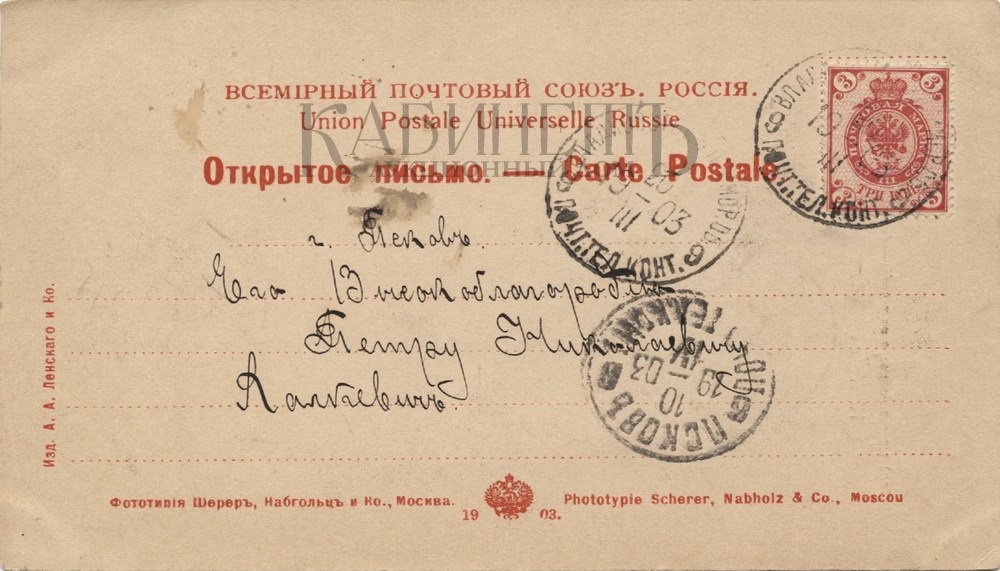 ВСЕМІРНЫЙ ПОЧТОВЫЙ СОЮЗЪ. РОССІЯ.
КАБИНЕТЪ
Union Postale Universelle Russie
АУКЦИОННЫЙ
Открытое письмо. — Carte Postale.
3 3
ПОЧТОВАЯ МАРКА
ТРИ КОП.
3 3
ПОЧТ.ТЕЛ.КОНТ.
19 III
ПОЧТ.ТЕЛ.КОНТ.
19 III 03
г. Псковъ.
Его Высокоблагородію
Петру Николаевичу
ПСКОВЪ
10 IV 1903
Изд. А. А. Ленскаго и Ко.
Фототипія Шереръ, Набгольцъ и Ко., Москва.
19 03.
Phototypie Scherer, Nabholz & Co., Moscou